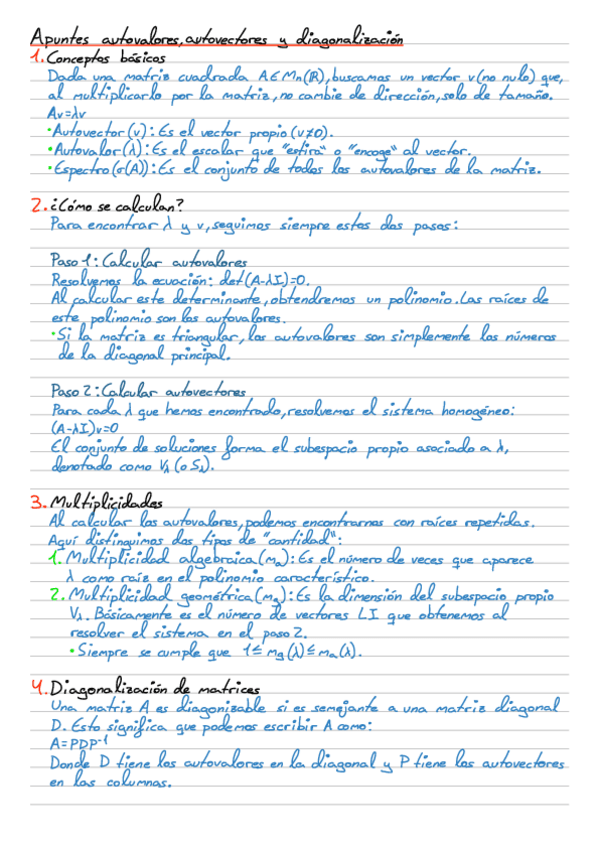 Apuntes autovalores, autovectores y diagonalización
1. Conceptos básicos
Dada una matriz cuadrada A∈Mn(ℝ), buscamos un vector v (no nulo) que,
al multiplicarlo por la matriz, no cambie de dirección, solo de tamaño.
Av=λv
• Autovector (v): Es el vector propio (v≠0).
• Autovalor (λ): Es el escalar que "estira" o "encoge" al vector.
• Espectro (σ(A)): Es el conjunto de todos los autovalores de la matriz.
2. ¿Cómo se calculan?
Para encontrar λ y v, seguimos siempre estos dos pasos:
Paso 1: Calcular autovalores
Resolvemos la ecuación: det(A-λI)=0.
Al calcular este determinante, obtendremos un polinomio. Las raíces de
este polinomio son los autovalores.
• Si la matriz es triangular, los autovalores son simplemente los números
de la diagonal principal.
Paso 2: Calcular autovectores
Para cada λ que hemos encontrado, resolvemos el sistema homogéneo:
(A-λI)v=0
El conjunto de soluciones forma el subespacio propio asociado a λ,
denotado como Vλ (o Sλ).
3. Multiplicidades
Al calcular los autovalores, podemos encontrarnos con raíces repetidas.
Aquí distinguimos dos tipos de "cantidad":
1. Multiplicidad algebraica (ma): Es el número de veces que aparece
λ como raíz en el polinomio característico.
2. Multiplicidad geométrica (ma): Es la dimensión del subespacio propio
Vλ. Básicamente es el número de vectores LI que obtenemos al
resolver el sistema en el paso 2.
• Siempre se cumple que 1≤mg(λ)≤ma(λ).
4. Diagonalización de matrices
Una matriz A es diagonizable si es semejante a una matriz diagonal
D. Esto significa que podemos escribir A como:
A=PDP⁻¹
Donde D tiene los autovalores en la diagonal y P tiene los autovectores
en las columnas.